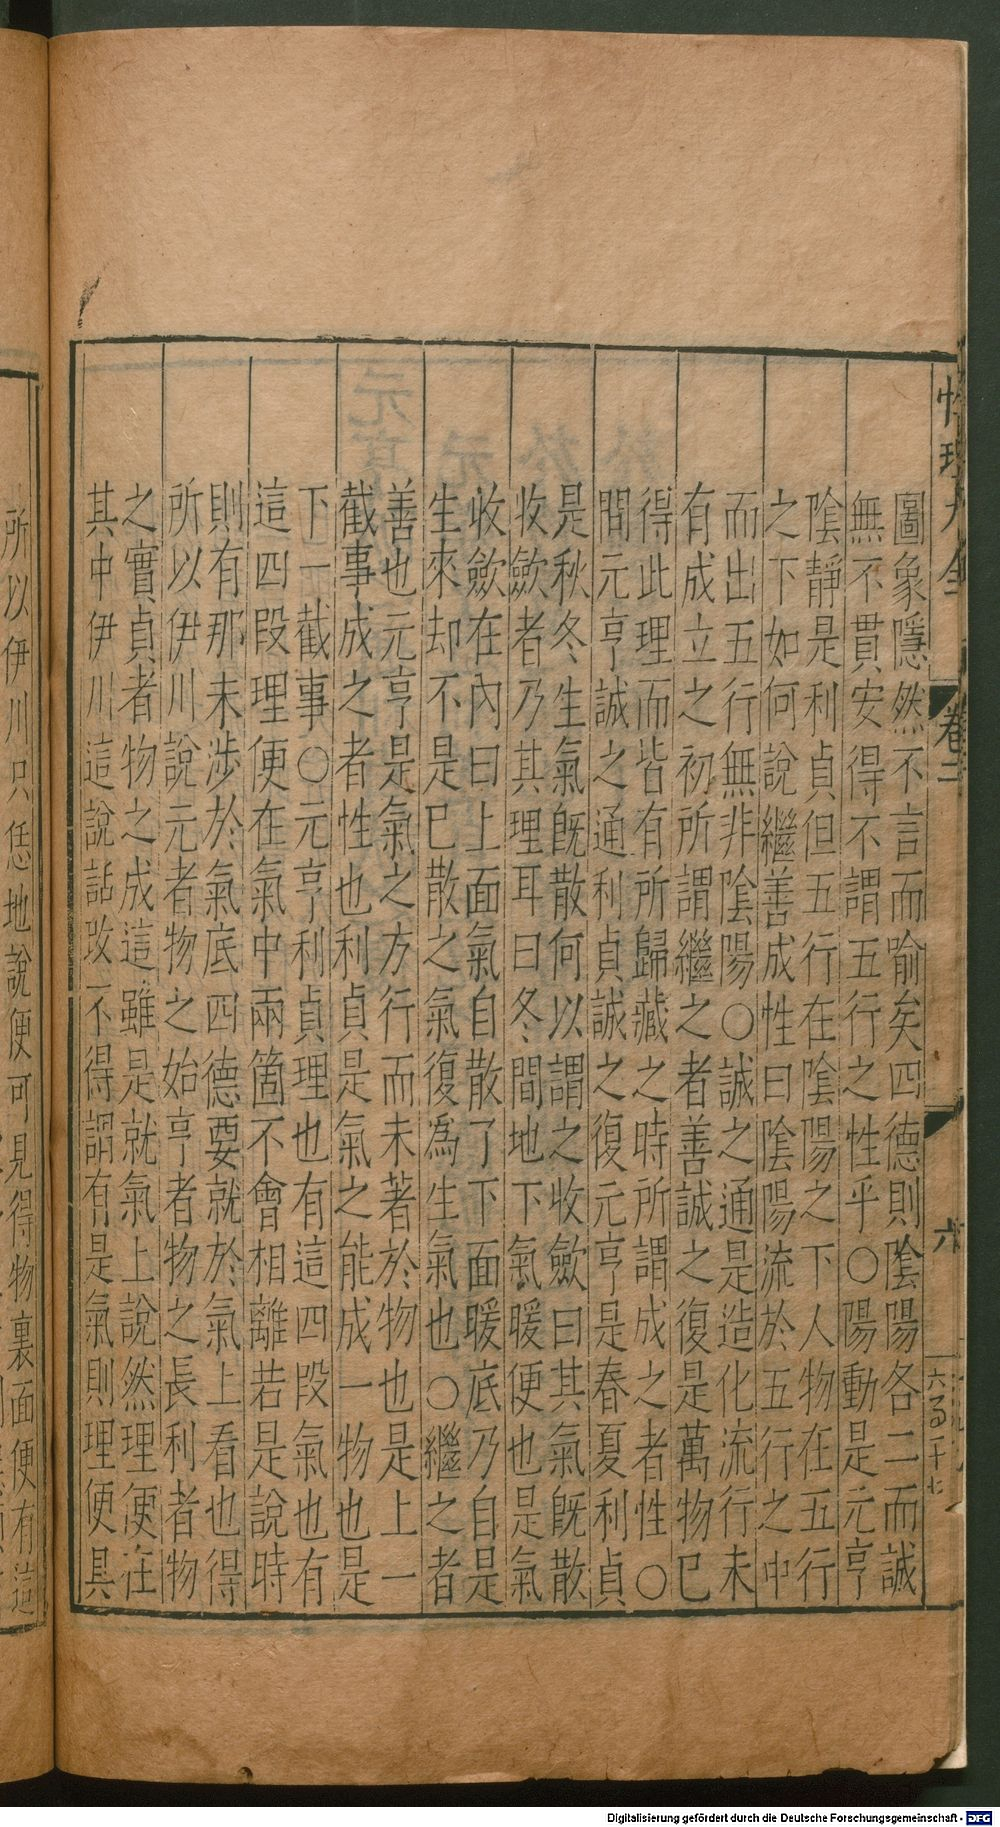 性理大全
卷二
六
六百二十七
圖象隱然不言而喻矣四德則陰陽各二而誠
無不貫安得不謂五行之性乎○陽動是元亨
陰靜是利貞但五行在陰陽之下人物在五行
之下如何說繼善成性曰陰陽流於五行之中
而出五行無非陰陽○誠之通是造化流行未
有成立之初所謂繼之者善誠之復是萬物巳
得此理而皆有所歸藏之時所謂成之者性○
問元亨誠之通利貞誠之復元亨是春夏利貞
是秋冬生氣旣散何以謂之收歛曰其氣旣散
收歛者乃其理耳曰冬間地下氣暖便也是氣
收歛在內曰上面氣自散了下面暖底乃自是
生來却不是巳散之氣復為生氣也○繼之者
善也元亨是氣之方行而未著於物也是上一
截事成之者性也利貞是氣之能成一物也是
下一截事○元亨利貞理也有這四段氣也有
這四段理便在氣中兩箇不會相離若是說時
則有那未涉於氣底四德要就於氣上看也得
所以伊川說元者物之始亨者物之長利者物
之實貞者物之成這雖是就氣上說然理便在
其中伊川這說話改不得謂有是氣則理便具
所以伊川只恁地說便可見得物裏面便有這
Digitalisierung gefördert durch die Deutsche Forschungsgemeinschaft - DFG